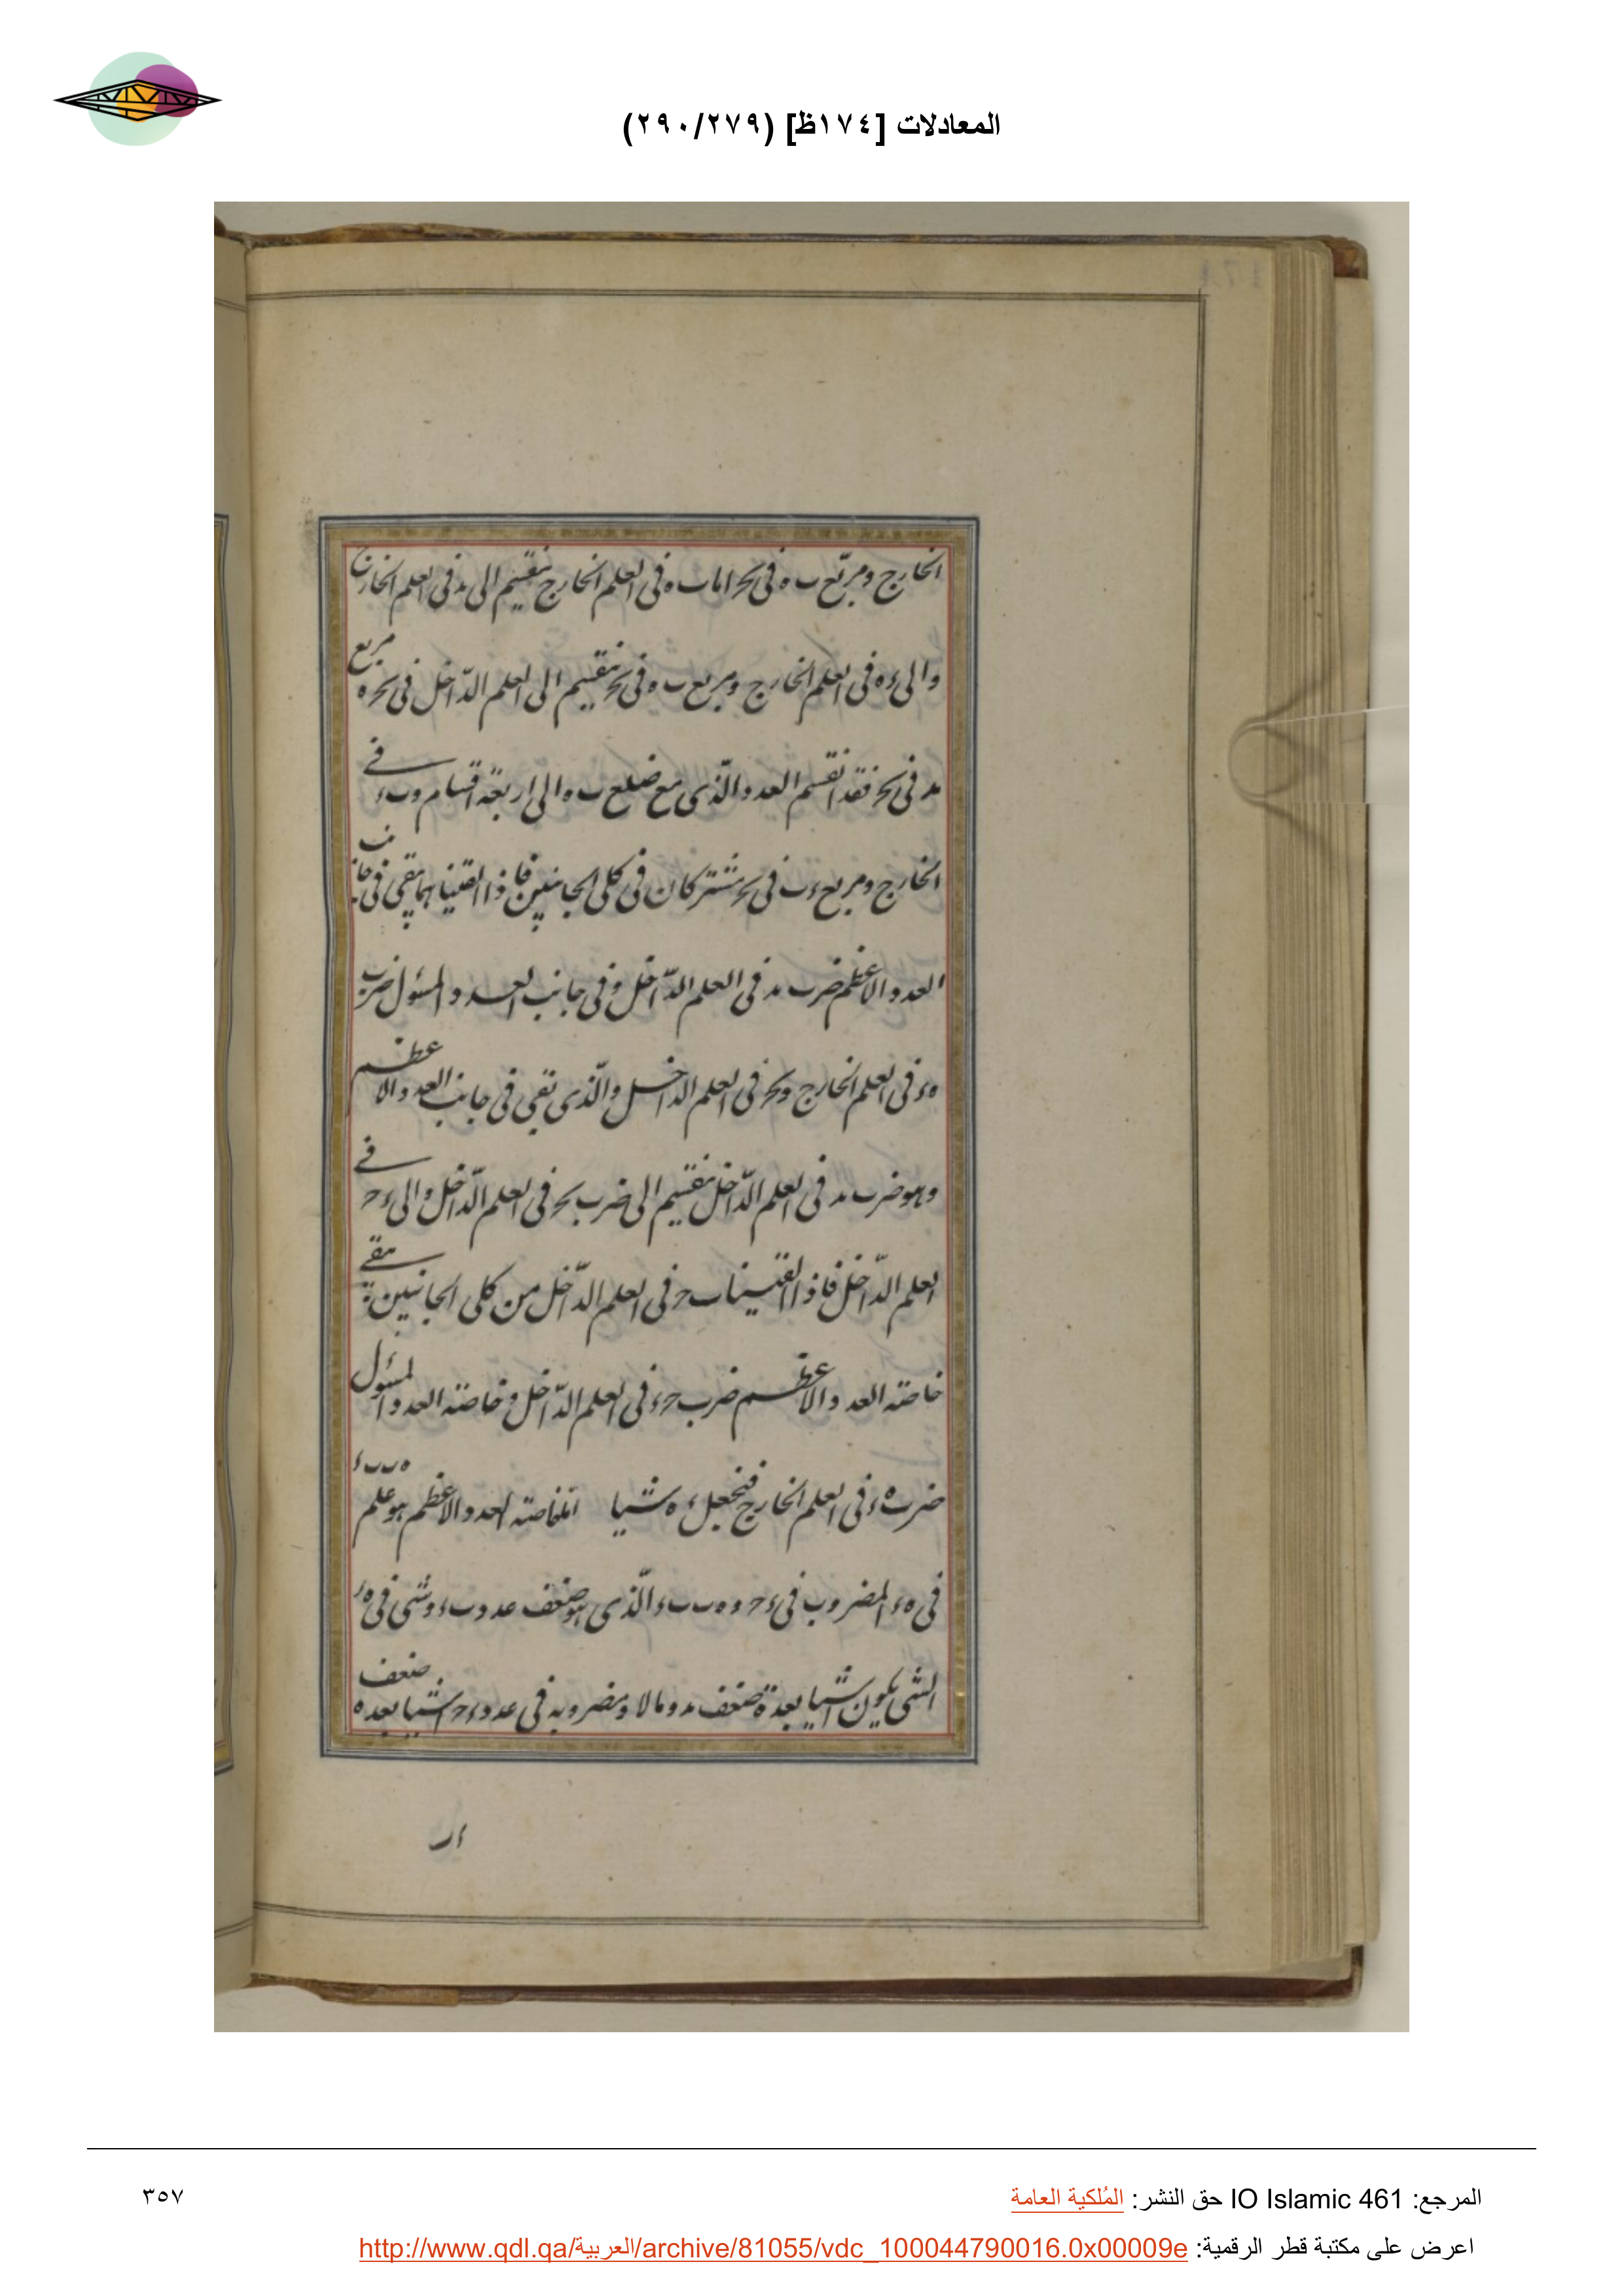 المعادلات [١٧٤ظ] (٢٩٠/٢٧٩)
الخارج ومربع ب ه فى بح اما ب ه فى العلم الخارج ينقسم الى بد فى العلم الخارج
والى ء ه فى العلم الخارج ومربع ب ه فى بح ينقسم الى العلم الداخل فى بح ه مربع
بد فى بح فقد انقسم العدد الذى مع ضلع ب ه الى اربعة اقسام وب ء فى
الخارج ومربع ء ب فى بح مشتركان فى كلى الجانبين فاذا القيناهما يبقى فى جانب
العدد الاعظم ضرب بد فى العلم الداخل وفى جانب العدد المسئول ضرب
ه ء فى العلم الخارج وبح فى العلم الداخل والذى بقى فى جانب العدد الاعظم
وهو ضرب بد فى العلم الداخل ينقسم الى ضرب بح فى العلم الداخل والى ء ح فى
العلم الداخل فاذا القينا ب ح فى العلم الداخل من كلى الجانبين يبقى
خاصة العدد الاعظم ضرب ح ء فى العلم الداخل وخاصة العدد المسئول
ضرب ه ء فى العلم الخارج فنجعل ء ه شيا لخاصة العدد الاعظم هو علم ه ب ب ء
فى ه ء المضروب فى ء ح و ه ب ب ء الذى هو ضعف عدد ب ء وشى فى ه ء
الشى يكون اشيا بعدة ضعف بد ومالا ومضروبه فى عدد ء ح اشيا بعدة ضعف
ء ب
المرجع: IO Islamic 461 حق النشر: المُلكية العامة
٣٥٧
اعرض على مكتبة قطر الرقمية: http://www.qdl.qa/العربية/archive/81055/vdc_100044790016.0x00009e